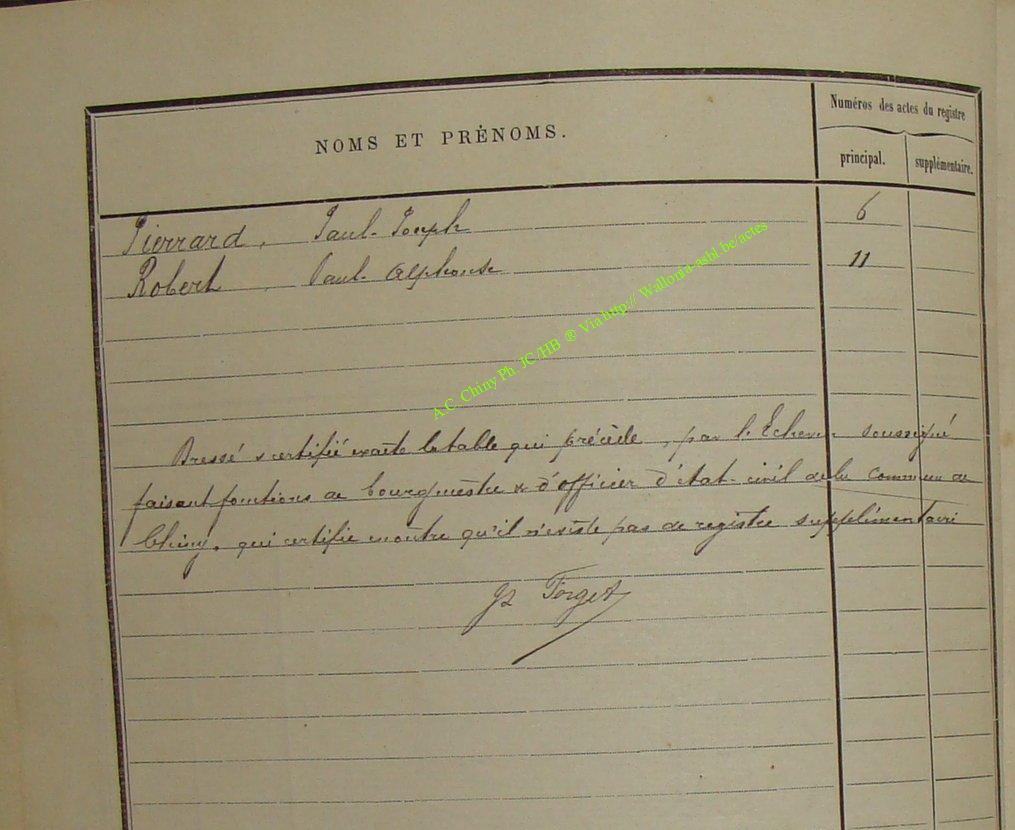 NOMS ET PRÉNOMS.
Numéros des actes du registre
principal.
supplémentaire.
Pierrard, Paul-Joseph 6
Robert, Paul-Alphonse 11
A.C. Chiny Ph. JC /HB ® Via http:// Wallonia-asbl.be/actes
Dressé & certifié exacte la table qui précède, par l'Echevin soussigné
faisant fonctions de bourgmestre & d'officier d'état-civil de la commune de
Chiny, qui certifie en outre qu'il n'existe pas de registre supplémentaire
Forget